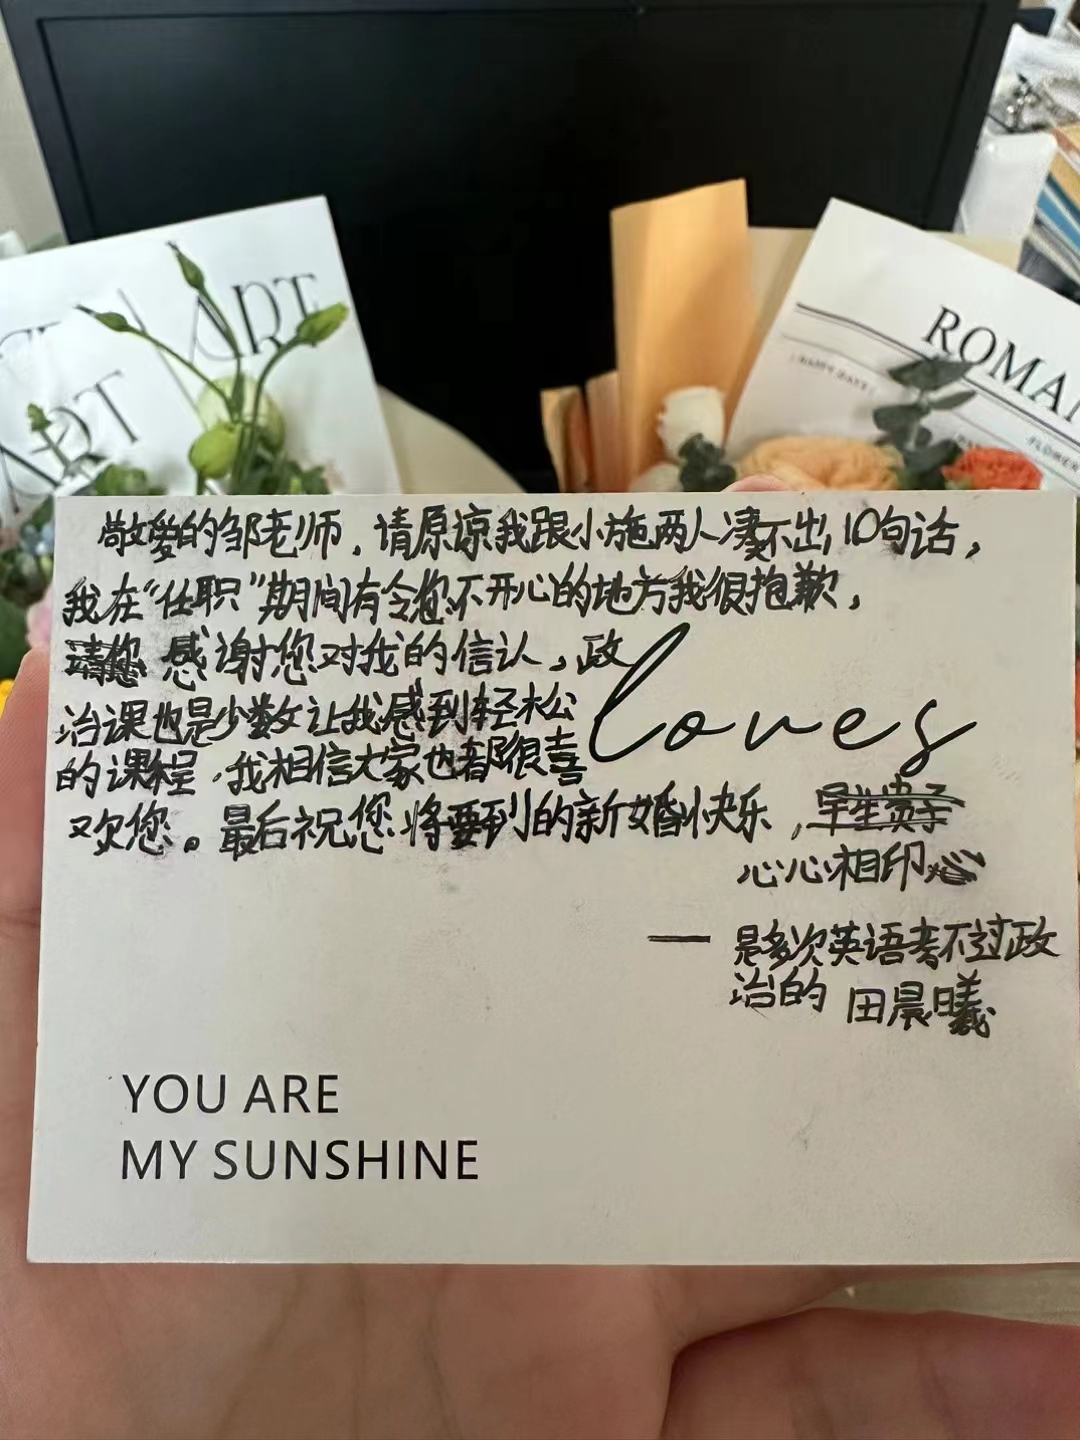 ART
ART
ROMA
HAPPY DAYS
FLOWER
敬爱的邹老师，请原谅我跟小施两人凑不出10句话，
我在“任职”期间有令您不开心的地方我很抱歉，
请您 感谢您对我的信认，政
治课也是少数让我感到轻松
的课程，我相信大家也都很喜
欢您。最后祝您将要到的新婚快乐，早生贵子
心心相印
loves
— 是多次英语考不过政
治的 田晨曦
YOU ARE
MY SUNSHINE